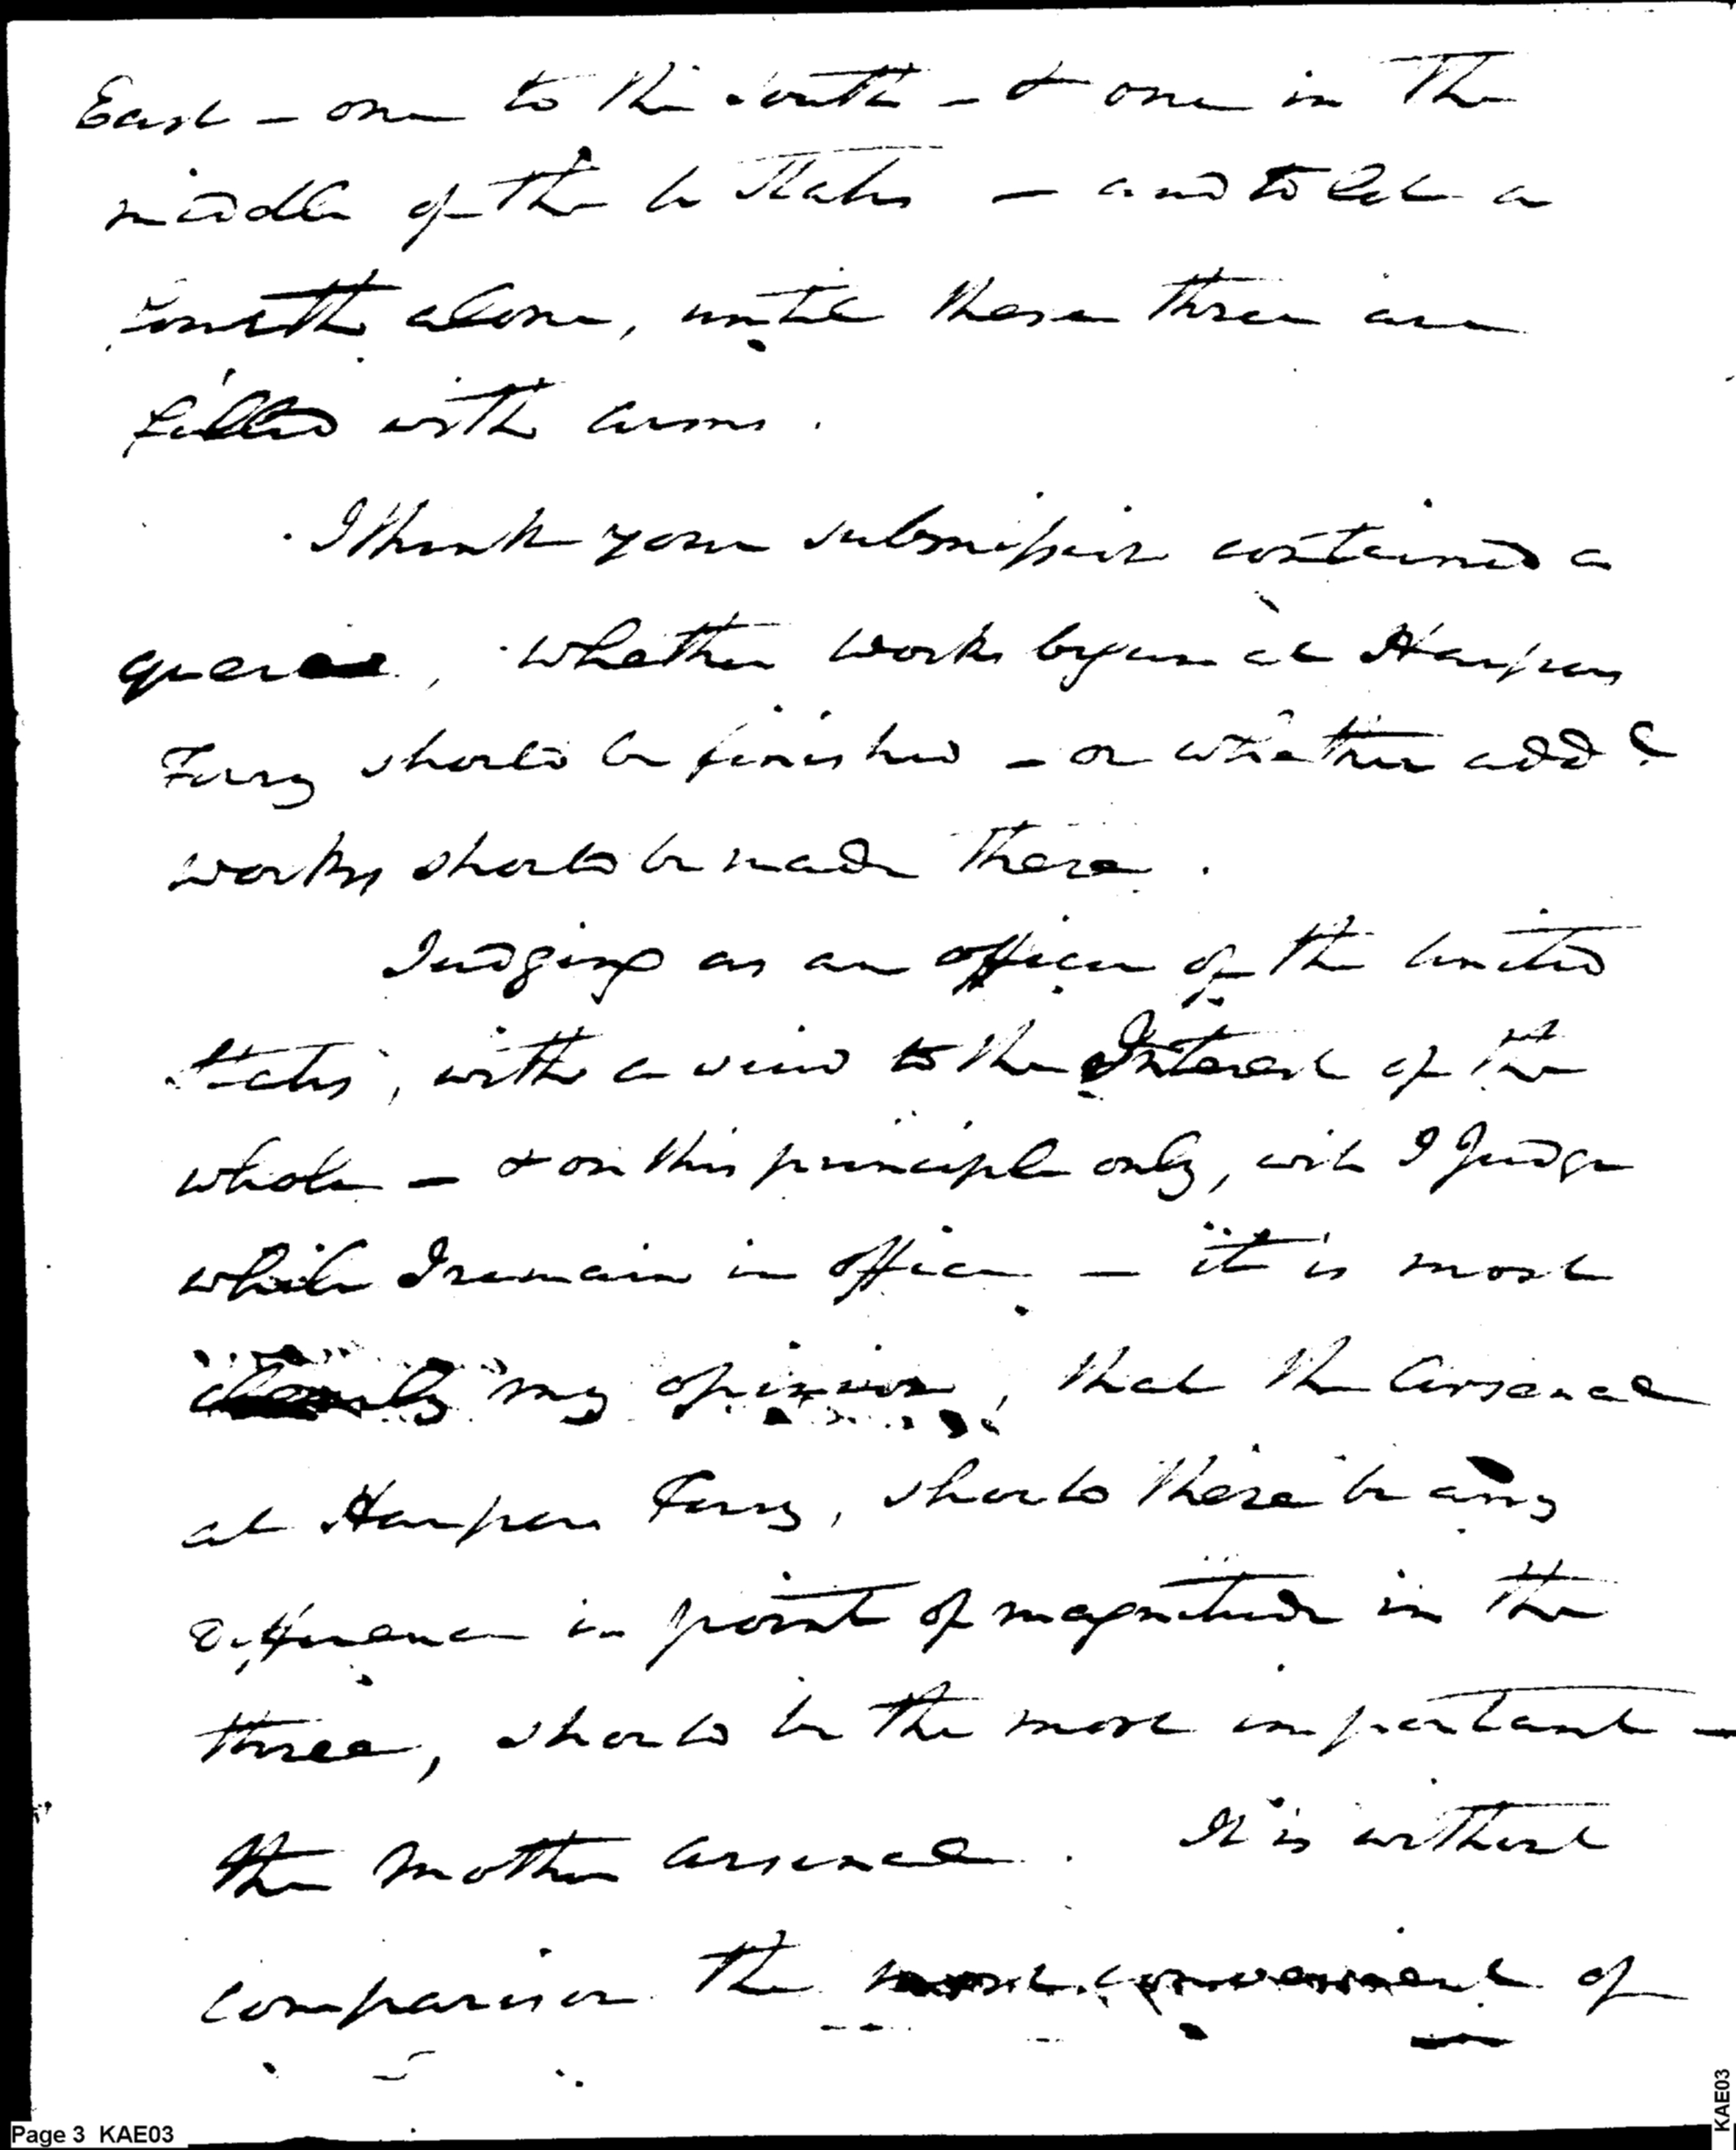 East – one to the South – & one in the
middle of the U States – and to let a
fourth alone, until these three are
filled with arms.
I think your submission contained a
queree, whether works begun at Harpers
Ferry should be finished – or whether add'l
works should be made there.
Judging as an officer of the United
States, with a view to the Interest of the
whole – & on this principle only, will I Judge
while I remain in office – it is most
clearly my opinion, that the Arsenal
at Harpers Ferry, should there be any
difference in point of magnitude in the
three, should be the more important –
the Mother arsenal. It is without
comparison the most convenient of
Page 3 KAE03
KAE03